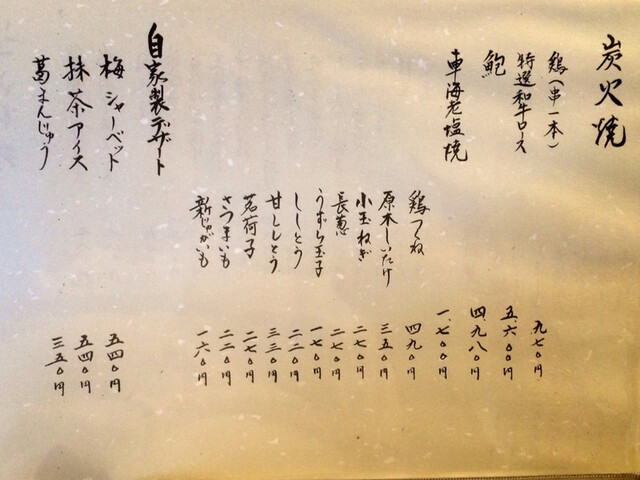 炭火焼
鶏(串一本) 九七〇円
特選和牛ロース 五、六〇〇円
鮑 四、九八〇円
車海老塩焼 一、七〇〇円
鶏つくね 四九〇円
原木しいたけ 三五〇円
小玉ねぎ 二七〇円
長葱 二七〇円
うずら玉子 一七〇円
ししとう 二二〇円
甘ししとう 三三〇円
茗荷子 二七〇円
さつまいも 二二〇円
新じゃがいも 一六〇円
自家製デザート
梅シャーベット 五四〇円
抹茶アイス 五四〇円
葛まんじゅう 三五〇円